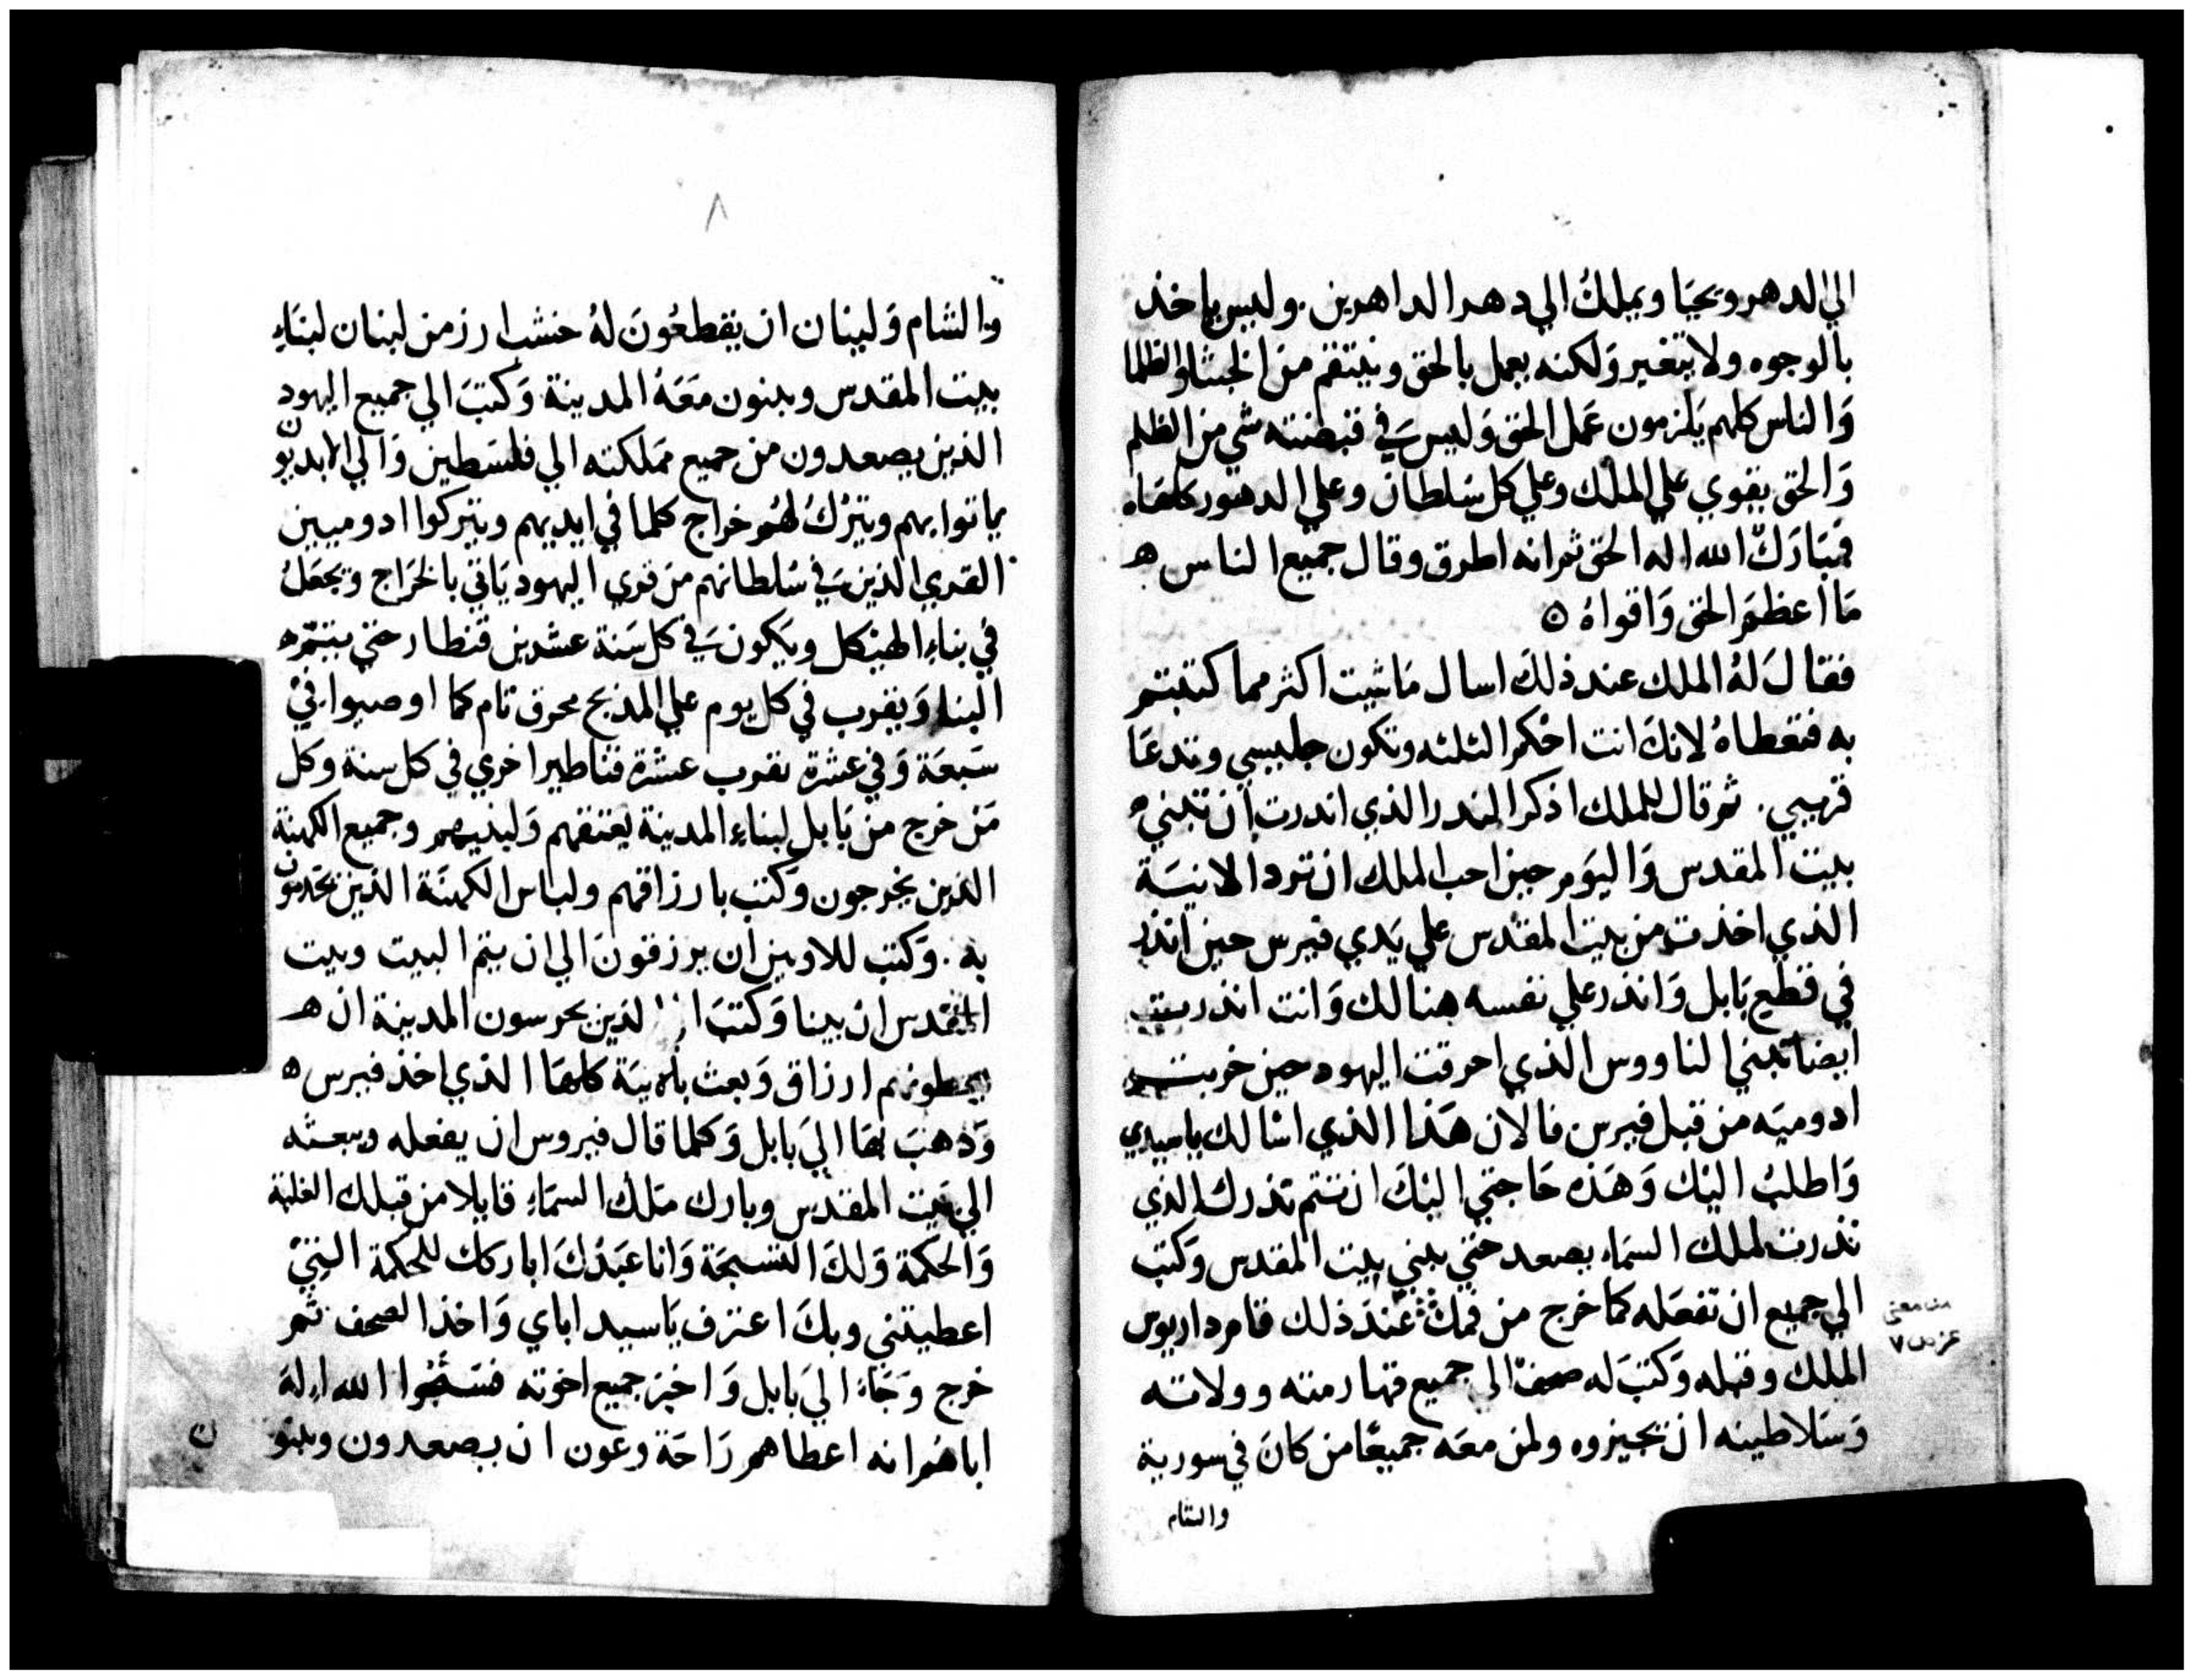 الي الدهر ويحيا ويملك الي دهر الداهرين. وليس ياخذ
بالوجوه ولا يتغير ولكنه يعمل بالحق وينتقم من الخبثا والظلما
والناس كلهم يلزمون عمل الحق وليس في قبضته شي من الظلم
والحق يقوي علي الملك وعلي كل سلطان وعلي الدهور كلها ه
فتبارك الله اله الحق ثم انه اطرق وقال جميع الناس ه
ما اعظم الحق واقواه ه
فقال له الملك عند ذلك اسال ما شيت اكثر مما كتبتم
به فتعطاه لانك انت احكم الثلثه وتكون جليسي وتدعا
قريبي. ثم قال للملك اذكر النذر الذي اندرت ان تبني
بيت المقدس واليوم حين احب الملك ان ترد الانية
الذي اخذت من بيت المقدس علي يدي فيرس حين انذر
في قطيع بابل وانذر علي نفسه هنالك وانت انذرت
ايضا تبني الناووس الذي احرقت اليهود حين خربت
ادوميه من قبل فيرس فالان هذا الذي اسالك ياسيدي
واطلب اليك وهذه حاجتي اليك ان تتم نذرك الذي
نذرت لملك السماء يصعد حتي يبني بيت المقدس وكتب
الي جميع ان تفعله كما خرج من فمك عند ذلك قام داريوس
الملك وقبله وكتب له صحف الي جميع قهارمته وولاته
وسلاطينه ان تجيزوه ولمن معه جميعا من كان في سورية
والشام
٨
والشام ولبنان ان يقطعون له خشب ارز من لبنان لبناء
بيت المقدس ويبنون معه المدينة وكتب الي جميع اليهود
الذين يصعدون من جميع مملكته الي فلسطين والي
ياتوا بهم ويترك لهم خراج كلما في ايديهم ويتركوا ادوميين
القري الذين في سلطانهم من قري اليهود ياتي بالخراج ويجعل
في بناء الهيكل ويكون في كل سنة عشرين قنطار حتي يتم ه
البناء ويقرب في كل يوم علي المذبح محرق تام كما اوصوا في
سبعة وفي عشرة يقرب عشرة قناطير اخري في كل سنة وكل
من خرج من بابل لبناء المدينة يعتقهم ولبنيهم وجميع الكهنة
الذين يخرجون وكتب بارزاقهم ولباس الكهنة الذين يخدمون
به. وكتب للاويين ان يرزقون الي ان يتم البيت وبيت
المقدس ان يبنا وكتب الذين يحرسون المدينة ان ه
يعطونهم ارزاق وبعث بالانية كلها الذي اخذ فيرس ه
وذهب بها الي بابل وكلما قال فيروس ان يفعله وبعثه
الي بيت المقدس وبارك ملك السماء قايلا من قبلك الغلبة
والحكمة ولك التسبحة وانا عبدك اباركك للحكمة التي
اعطيتني وبك اعترف ياسيد اباي واخذ الصحف ثم
خرج وجاء الي بابل واخبر جميع اخوته فسبحوا الله اله
اباهم انه اعطاهم راحة وعون ان يصعدون ويبنو